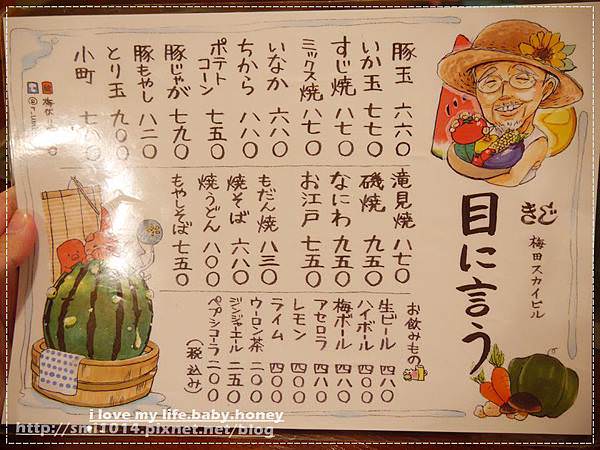 きじ
梅田スカイビル
目に言う
豚玉 六六〇
いか玉 七七〇
すじ焼 八七〇
ミックス焼 八七〇
いなか 六八〇
ちから 八八〇
ポテトコーン 七五〇
豚じゃが 七九〇
豚もやし 八二〇
とり玉 九〇〇
小町
滝見焼 八七〇
磯焼 九五〇
なにわ 九五〇
お江戸 七五〇
もだん焼 八三〇
焼そば 六八〇
焼うどん 八〇〇
もやしそば 七五〇
お飲みもの
生ビール 四八〇
ハイボール 四八〇
梅ボール 四八〇
アセロラ 四八〇
レモン 四〇〇
ライム 四〇〇
ウーロン茶 二〇〇
ジンジャエール 二五〇
ペプシコーラ 二〇〇
(税込み)
i love my life.baby.honey
http://smi1014.pixnet.net/blog